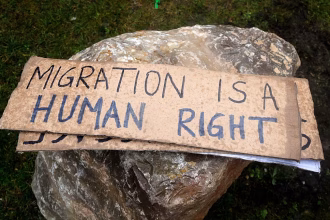 MIGRATION IS A
HUMAN RIGHT